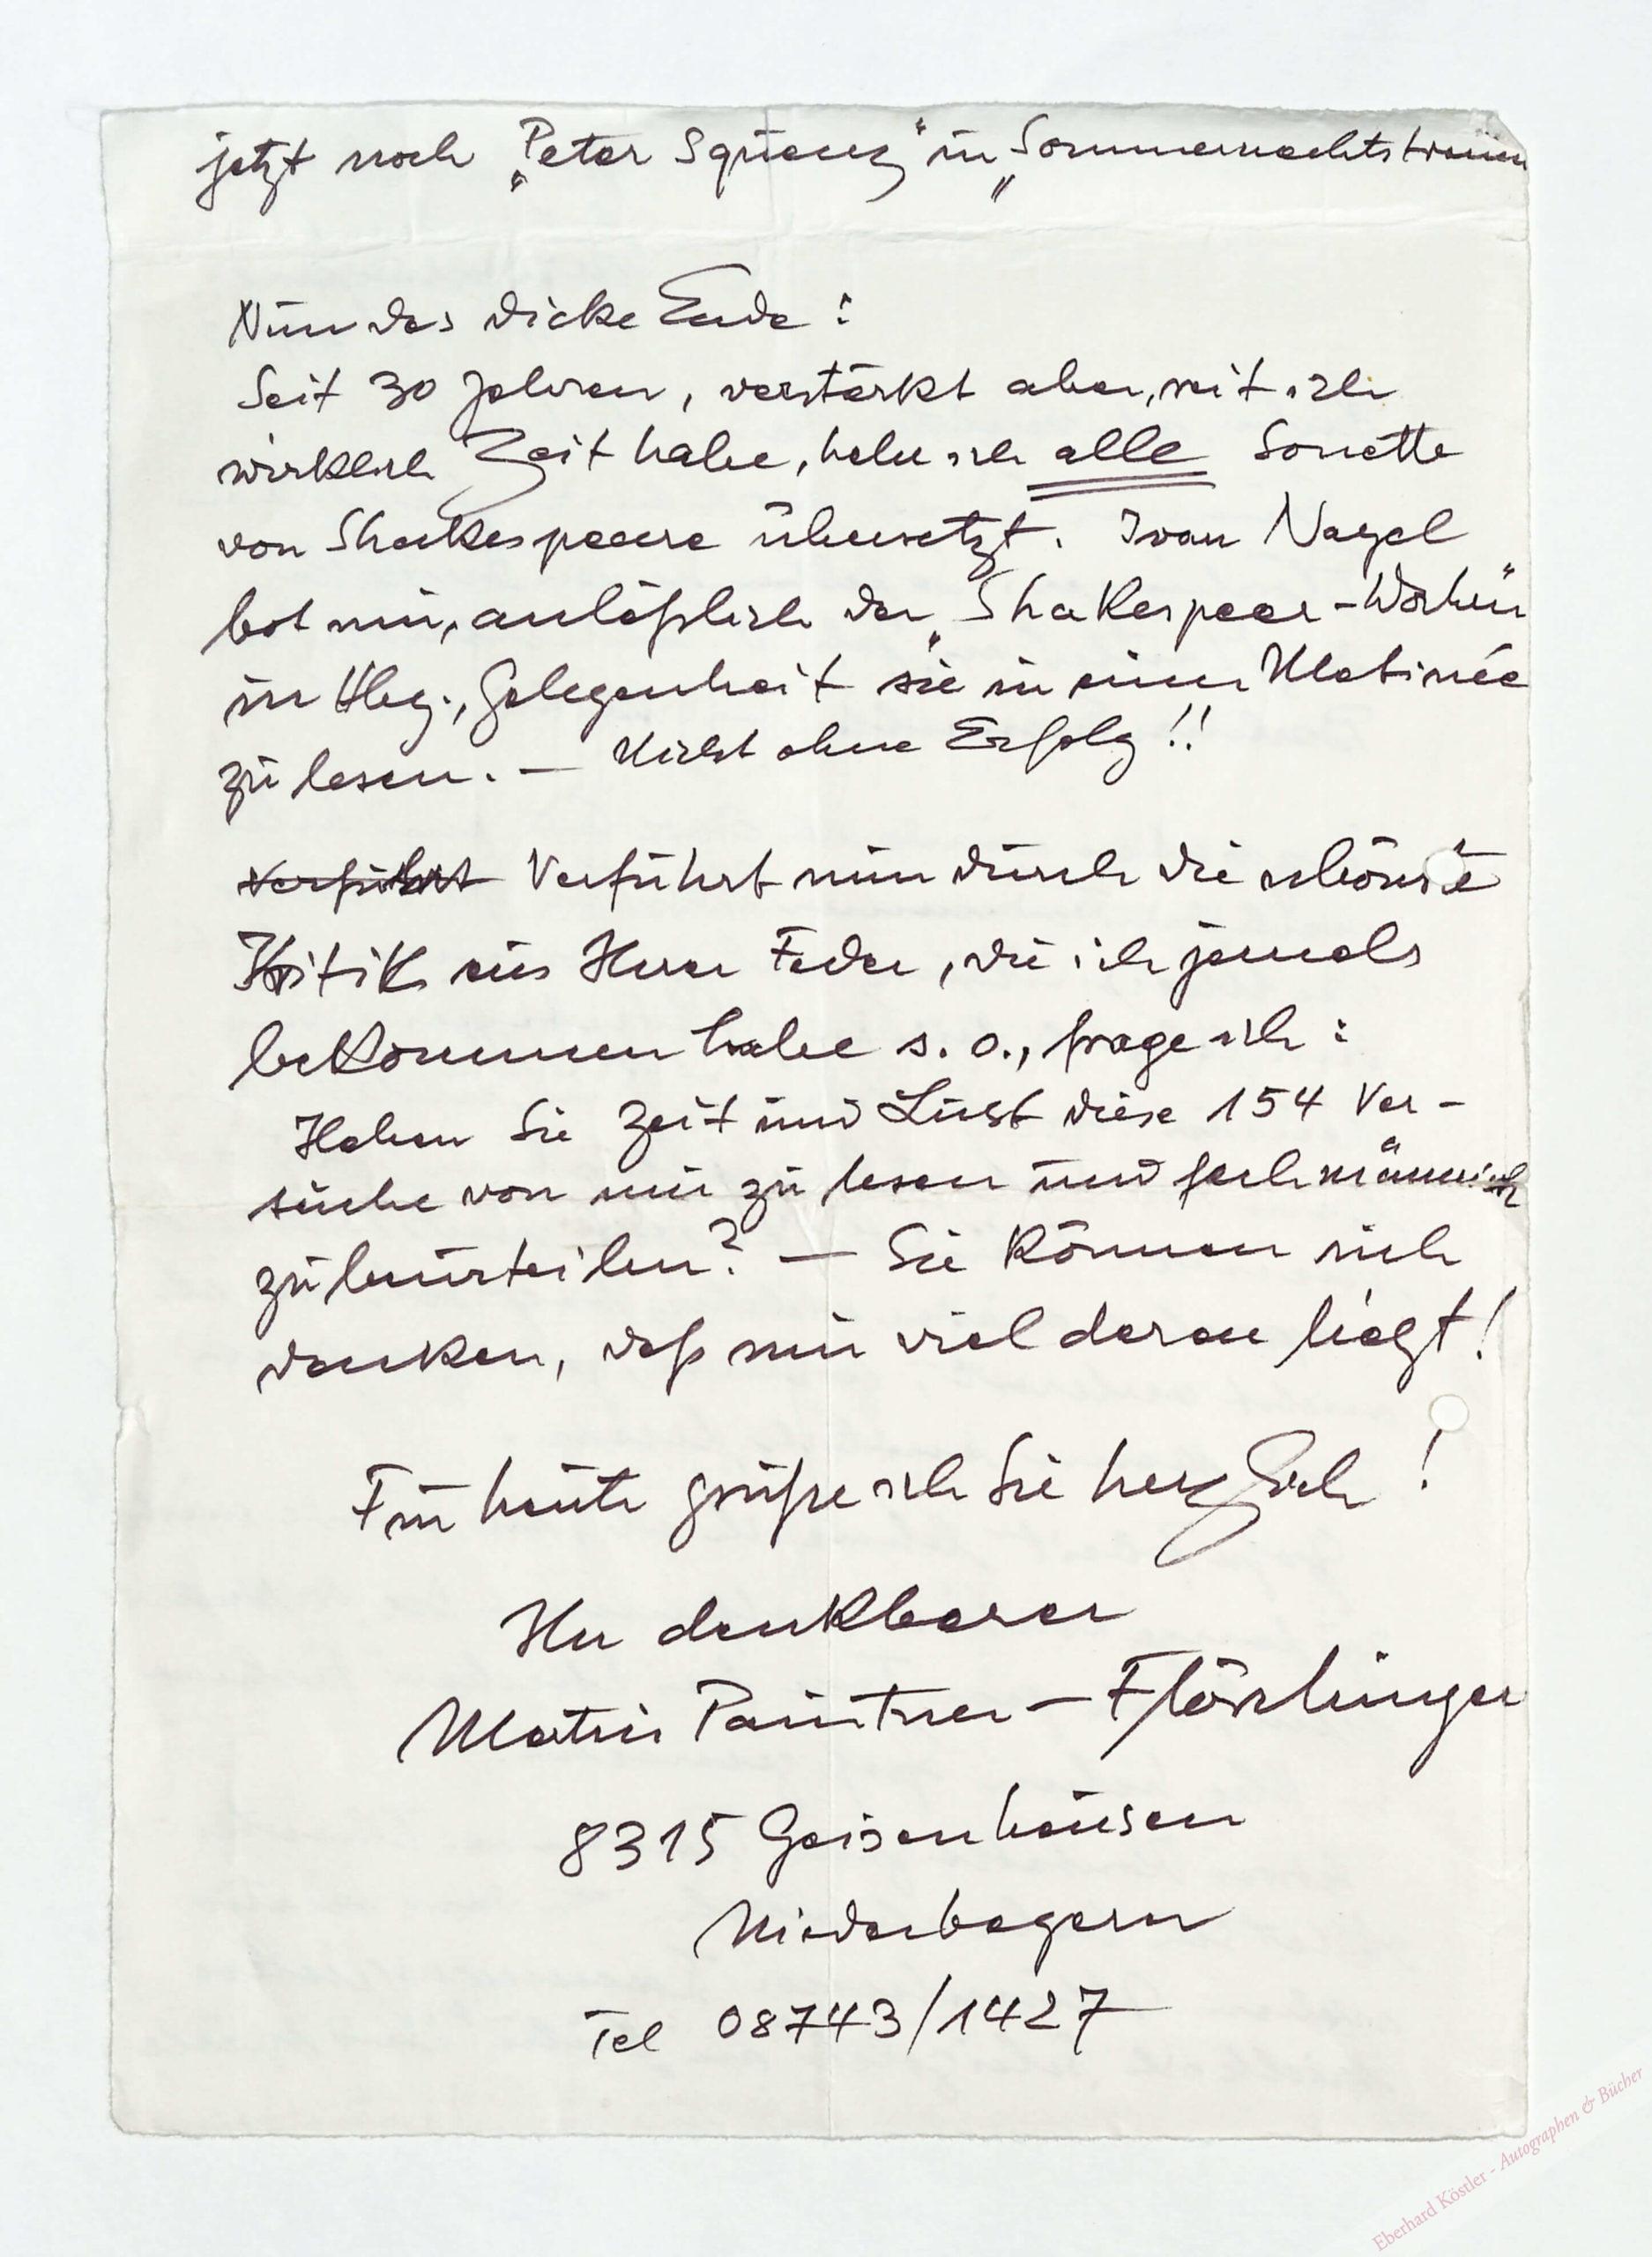 jetzt noch „Peter Squenz" in „Sommernachtstraum
Nun das dicke Ende:
Seit 30 Jahren, verstärkt aber, seit ich
wirklich Zeit habe, habe ich alle Sonette
von Shakespeare übersetzt. Ivan Nagel
bot mir, anläßlich der „Shakespear-Wochen"
in Hbg., Gelegenheit sie in einer Matinée
zu lesen. — Nicht ohne Erfolg!!
Verführt Verführt nun durch die schönste
Kritik aus Ihrer Feder, die ich jemals
bekommen habe s. o., frage ich:
Haben Sie Zeit und Lust diese 154 Ver-
suche von mir zu lesen und fachmännisch
zu beurteilen? — Sie können sich
denken, daß mir viel daran liegt!
Für heute grüße ich Sie herzlich!
Ihr dankbarer
Paintner-Flörchinger
8315 Geisenhausen
Niederbayern
Tel 08743/1427
Eberhard Köstler - Autographen & Bücher